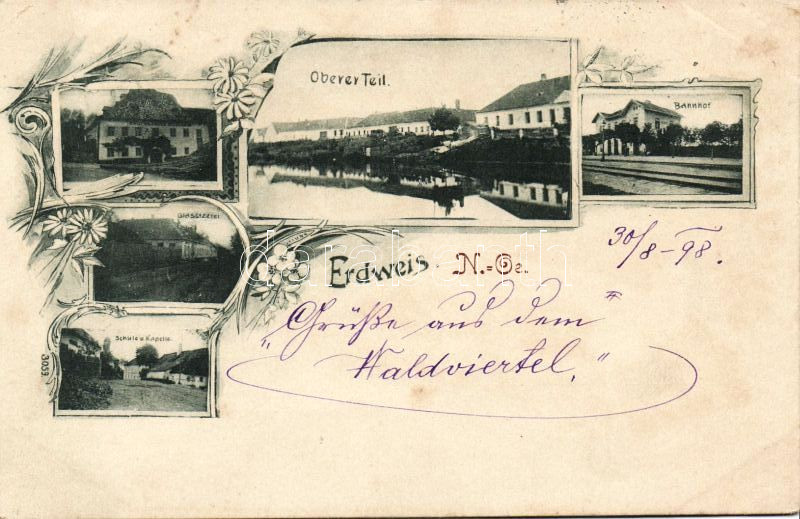 Oberer Teil.
Bahnhof
Glasbläterei
Schule u. Kapelle.
3039
Erdweis. N.=Oe.
30/8-98.
"Grüße aus dem
Waldviertel."
darabanth